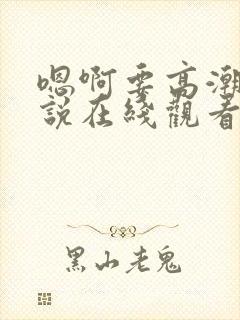 嗯啊要高潮
說在綫觀看
黑山老鬼